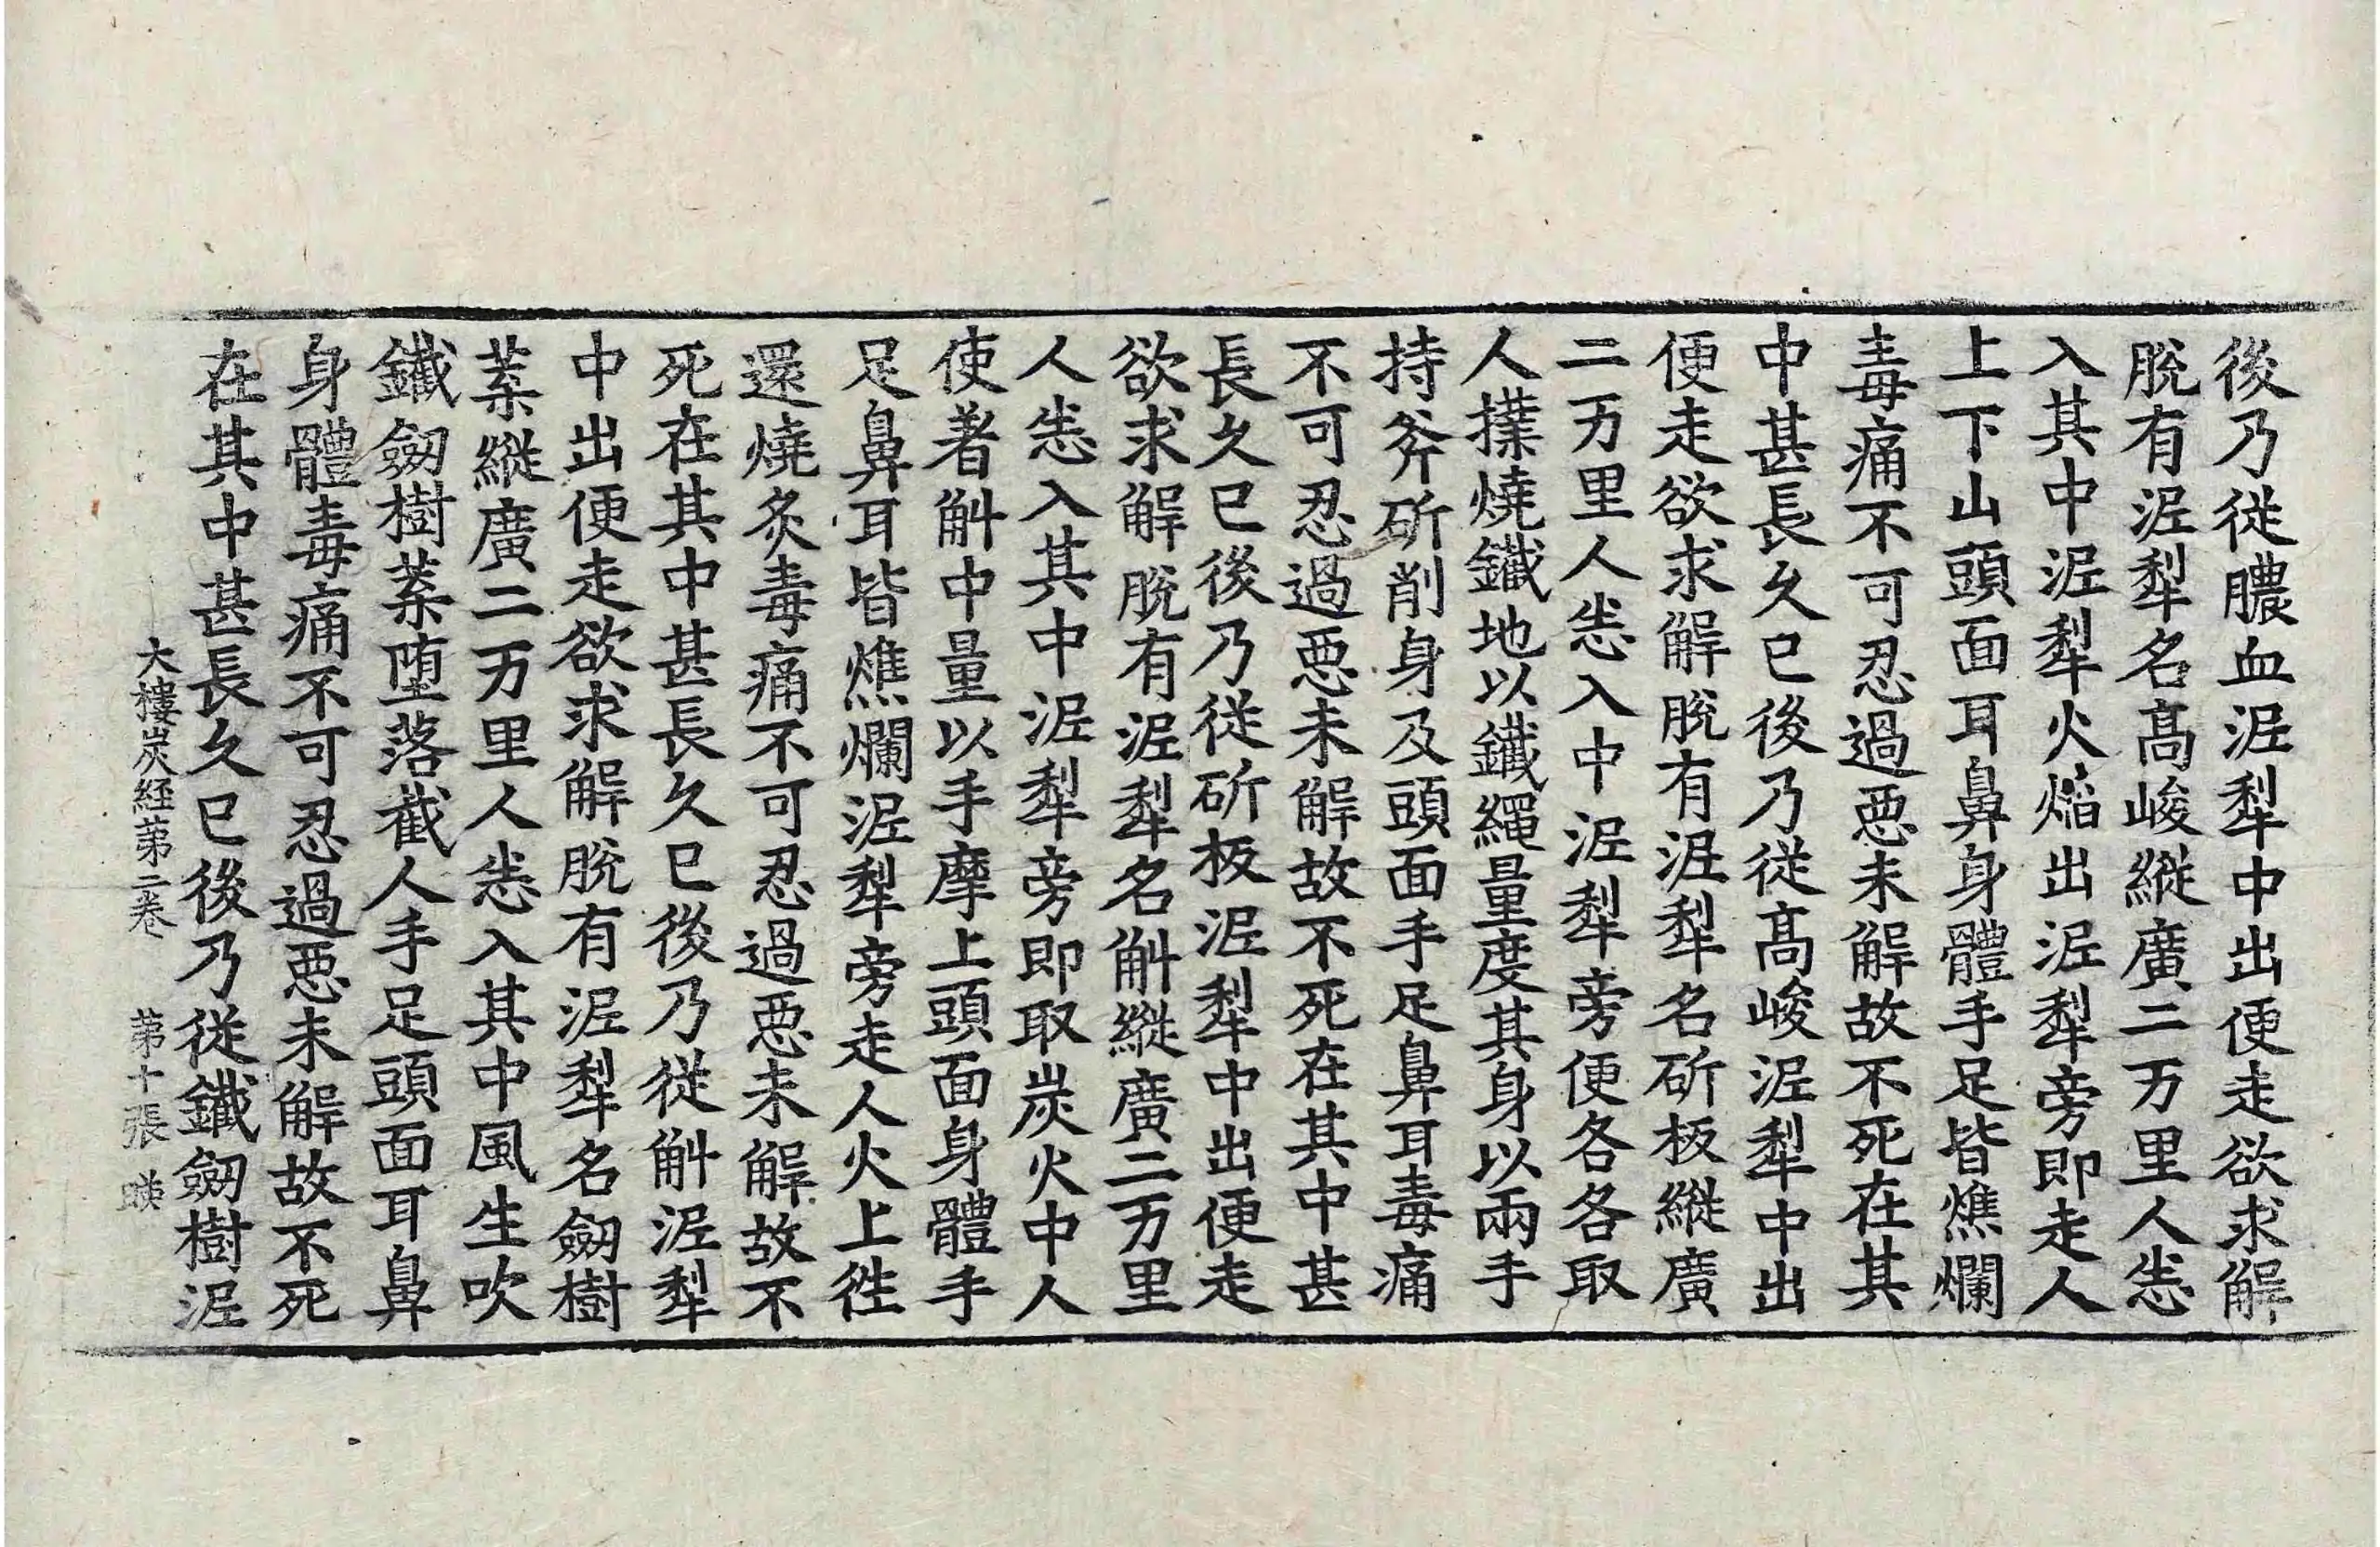 後乃從膿血泥犁中出便走欲求解
脫有泥犁名高峻縱廣二万里人悉
入其中泥犁火焰出泥犁旁即走人
上下山頭面耳鼻身體手足皆燋爛
毒痛不可忍過惡未解故不死在其
中甚長久已後乃從高峻泥犁中出
便走欲求解脫有泥犁名斫板縱廣
二万里人悉入中泥犁旁便各各取
人撲燒鐵地以鐵繩量度其身以兩手
持斧斫削身及頭面手足鼻耳毒痛
不可忍過惡未解故不死在其中甚
長久已後乃從斫板泥犁中出便走
欲求解脫有泥犁名斛縱廣二万里
人悉入其中泥犁旁即取炭火中人
使著斛中量以手摩上頭面身體手
足鼻耳皆燋爛泥犁旁走人火上徃
還燒炙毒痛不可忍過惡未解故不
死在其中甚長久已後乃從斛泥犁
中出便走欲求解脫有泥犁名劒樹
葉縱廣二万里人悉入其中風生吹
鐵劒樹葉墮落截人手足頭面耳鼻
身體毒痛不可忍過惡未解故不死
在其中甚長久已後乃從鐵劒樹泥
大樓炭経第二卷 第十張 英